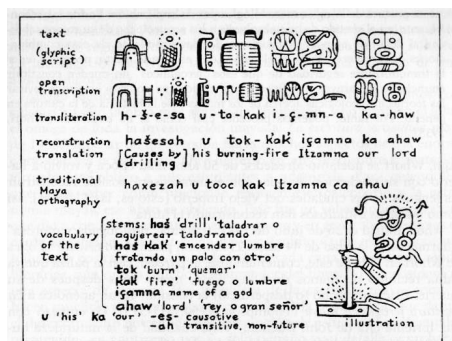 text
(glyphic script)
open transcription
transliteration h-š-e-sa u-to-kak i-ç-mn-a ka-haw
reconstruction hašesah u tok-kak içamna ka ahaw
translation [Causes by drilling] his burning-fire Itzamna our lord
traditional Maya orthography haxezah u tooc kak Itzamna ca ahau
vocabulary of the text
stems: haš 'drill' taladrar o
agujerear taladrando'
haš kak 'encender lumbre
frotando un palo con otro'
tok 'burn' 'quemar'
kak 'fire' 'fuego o lumbre
içamna name of a god
ahaw 'lord' 'rey, o gran señor'
u 'his' ka 'our' -es- causative
-ah transitive, non-future
illustration